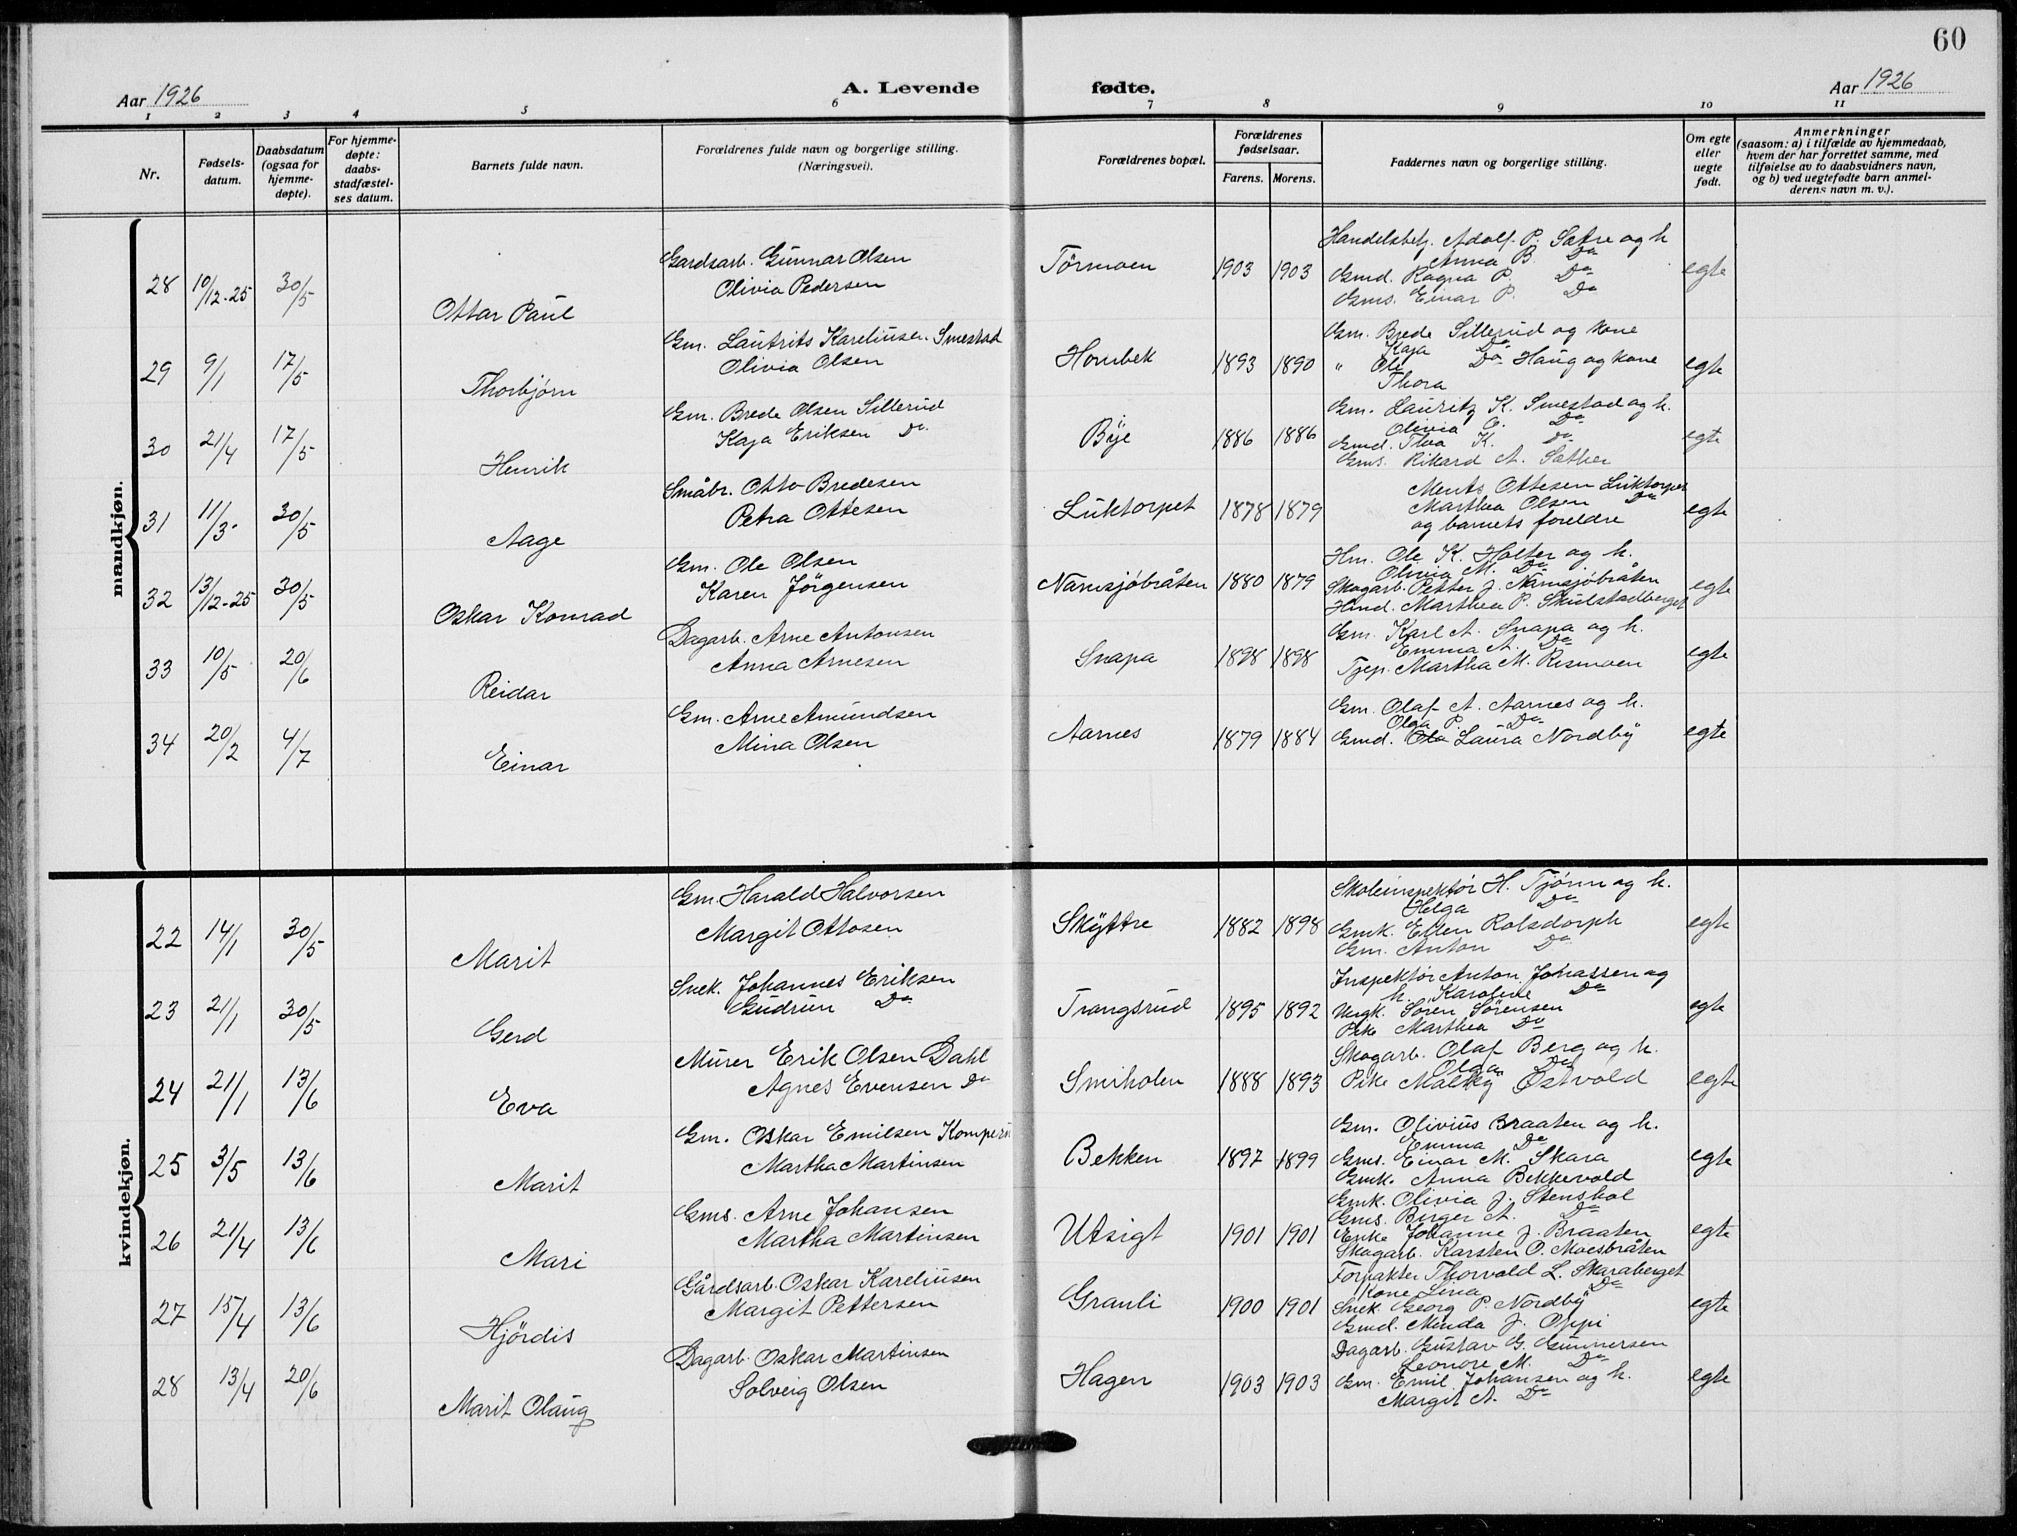 60
Aar 1926
A. Levende fødte.
Aar 1926
1 2 3 4 5 6 7 8 9 10 11
Nr.
Fødsels-
datum.
Daabsdatum
(ogsaa for
hjemme-
døpte).
For hjemme-
døpte:
daabs-
stadfæstel-
ses datum.
Barnets fulde navn.
Forældrenes fulde navn og borgerlige stilling.
(Næringsvei).
Forældrenes bopæl.
Forældrenes
fødselsaar.
Farens. Morens.
Faddernes navn og borgerlige stilling.
Om egte
eller
uegte
født.
Anmerkninger
(saasom: a) i tilfælde av hjemmedaab,
hvem der har forrettet samme, med
tilføielse av to daabsvidners navn,
og b) ved uegtefødte barn anmel-
derens navn m. v.).
mandkjøn.
28 10/12-25 30/5
Ottar Paul
Gardsarb. Gunnar Olsen
Olivia Pedersen
Tørmoen 1903 1903
Handelsbetj. Adolf P. Sætre og h
Anna B. Do
Gmd. Ragna P. Do
Gms. Einar P. Do
egte
29 9/1 17/5
Thorbjørn
Gm. Lautrits Kareliusen Smestad
Olivia Olsen
Hombek 1893 1890
Gm. Brede Sillerud og kone
Kaja Do
" Ole Do Haug og kone
Thora
egte
30 21/4 17/5
Henrik
Gm. Brede Olsen Sillerud
Kaja Eriksen Do
Bye 1886 1886
Gm. Lauritz K. Smestad og h.
Olivia O. Do
Gmd. Thea K. Do
Gms. Rikard A. Sæther
egte
31 11/3 30/5
Aage
Småbr. Otto Bredesen
Petra Ottesen
Luktorpet 1878 1879
Ments Ottesen Luktorpet
Marthea Olsen Do
og barnets foreldre
egte
32 13/12-25 30/5
Oskar Konrad
Gm. Ole Olsen
Karen Jørgensen
Namsjøbråten 1880 1879
Hm. Ole K. Holter og h.
Olivia M. Do
Skogarb. Petter J. Namsjøbråten
Hmd. Marthea P. Skulstadberget
egte
33 10/5 20/6
Reidar
Dagarb. Arne Antonsen
Anna Arnesen
Snapa 1898 1898
Gm. Karl A. Snapa og h.
Emma A. Do
Tjep. Martha M. Rismoen
egte
34 20/2 4/7
Einar
Gm. Arne Amundsen
Mina Olsen
Aarnes 1879 1884
Gm. Olaf A. Aarnes og h.
Olga P. Do
Gmd. Laura Nordby
egte
kvindekjøn.
22 14/1 30/5
Marit
Gm. Harald Halvorsen
Margit Ottosen
Skyttre 1882 1898
Skoleinspektør H. Tjørn og h.
Helga Do
Gmk. Ellen Rolsdorph
Gm. Anton Do
egte
23 21/1 30/5
Gerd
Snek. Johannes Eriksen
Gudrun Do
Trangsrud 1895 1892
Inspektør Anton Johassen og
h. Karoline Do
Ungk. Søren Sørensen
Pike Marthea Do
egte
24 21/1 13/6
Eva
Murer Erik Olsen Dahl
Agnes Evensen Do
Smiholen 1888 1893
Skogarb. Olaf Berg og h.
Olga Do
Pike Malky Østvold
egte
25 3/5 13/6
Marit
Gm. Oskar Emilsen
Martha Martinsen
Bekken 1897 1899
Gm. Olivius Braaten og h.
Emma Do
Gms. Einar M. Skara
Gmk. Anna Bekkevold
egte
26 21/4 13/6
Mari
Gms. Arne Johansen
Martha Martinsen
Utsigt 1901 1901
Gmk. Olivia J. Stenshol
Gms. Birger A. Do
Enke Johanne J. Braaten
Skogarb. Karsten O. Moesbråten
egte
27 15/4 13/6
Hjørdis
Gårdsarb. Oskar Kareliusen
Margit Pettersen
Granli 1900 1901
Forpakter Thorvald L. Skaraberget
Kone Lina Do
Snek. Georg P. Nordby
Gmd. Minda J. Oppi
egte
28 13/4 20/6
Marit Olaug
Dagarb. Oskar Martinsen
Solveig Olsen
Hagen 1903 1903
Dagarb. Gustav G. Gunnersen
Leonore M. Do
Gm. Emil Johansen og h.
Margit A. Do
egte